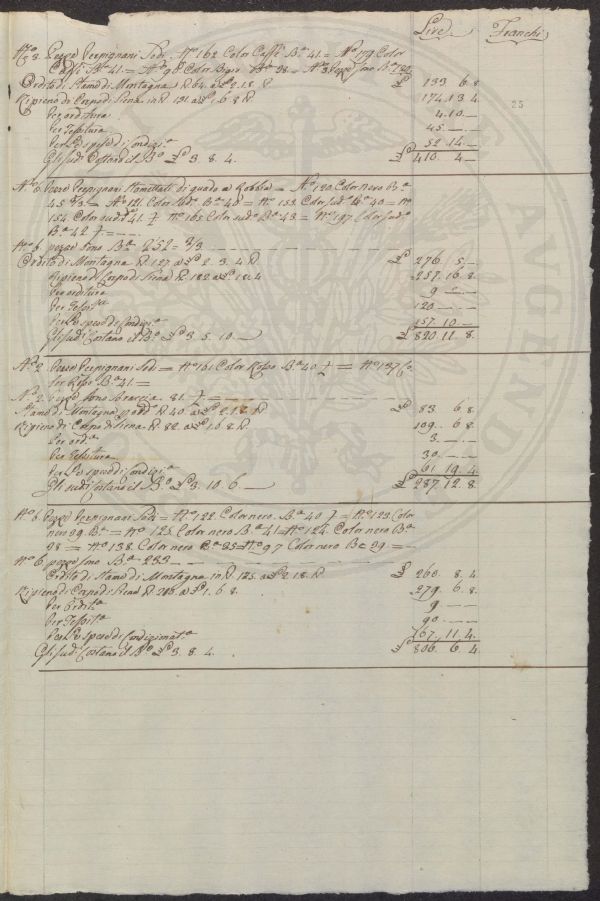 Lire Franchi
N.o 3. Pezze Perpignani Sodi. N.o 162 Color Caffè B.a 41. = N.o 179 Color
Caffè B.a 41. = N.o 98 Color Bigio
Ordito di Stamo di Montagna ℔ 64. a £ 2.1.8 ℔ £ 133 6. 8
Ripieno di Corpo di Siena in ℔ 131. a £ 1. 6. 8 ℔ 174. 13. 4.
Per orditura 4. 10. —
Per Tessitura 45 — —
Per L.o e spese di Condiz.e 52 14. —
Gli sud.i Costano il B.o £ 3. 8. 4. £ 410. 4 —
25
N.o 6 Pezze Perpignani Stamettati di guado a Robbia = N.o 120 Color nero B.a
45 2/3 = N.o 121 Color sud.o B.a 40 = N.o 153 Color sud.o B.a 40 = N.o
154 Color sud.o 41. = N.o 165 Color sud.o B.a 43 = N.o 197 Color sud.o
B.a 42 = — —
N.o 6 pezze sono B.a 252 = 2/3 —
Ordito di Montagna ℔ 127. a £ 2. 3. 4 ℔ £ 276. 5 —
Ripieno di Corpo di Siena ℔ 182 a £ 257. 16. 8
Per orditura 9 — —
Per Tessit.a 120 — —
Per L.o e spese di Condiz.e 157. 10. —
Gli sud.i Costano il B.o £ 3. 5. 10. — £ 820. 11. 8.
N.o 2. Pezze Perpignani Sodi = N.o 161 Color Roso B.a 40 = N.o 137 Co.
lor Roso B.a 41. =
N.o 2. Pezze sono braccia 81. = — —
Stamo di Montagna ℔ 40 a £ 2. 1. 8 ℔ £ 83. 6. 8
Ripieno di Corpo di Siena ℔ 82 a £ 1. 6. 8 ℔ 109. 6 8
Per ord.a 3. — —
Per Tessitura 30, — —
Per L.o e spese di Condiz.e 61 19. 4
Gli sudi Costano il B.o £ 3. 10. 6 — £ 287. 12. 8
N.o 6 Pezze Perpignani Sodi = N.o 122 Color nero B.a 40 = N.o 123 Color
nero 39. B.a = N.o 125 Color nero B.a 41 = N.o 124. Color nero B.a
38 — N.o 138 Color nero B.a 35 = N.o 97 Color nero B.a 39. = —
N.o 6 pezze sono B.a 233 —
Ordito di Stamo di Montagna in ℔ 125. a £ 2. 1. 8. ℔ £ 260. 8. 4
Ripieno di Corpo di Siena ℔ a £ 1. 6. 8. 279. 6. 8
Per Ordit.a 9 — —
Per Tessit.a 90 — —
Per L.o e spese di Condizionat.a 167. 11. 4
Gli sud.i Costano il B.o £ 3. 8. 4. £ 806. 6. 4